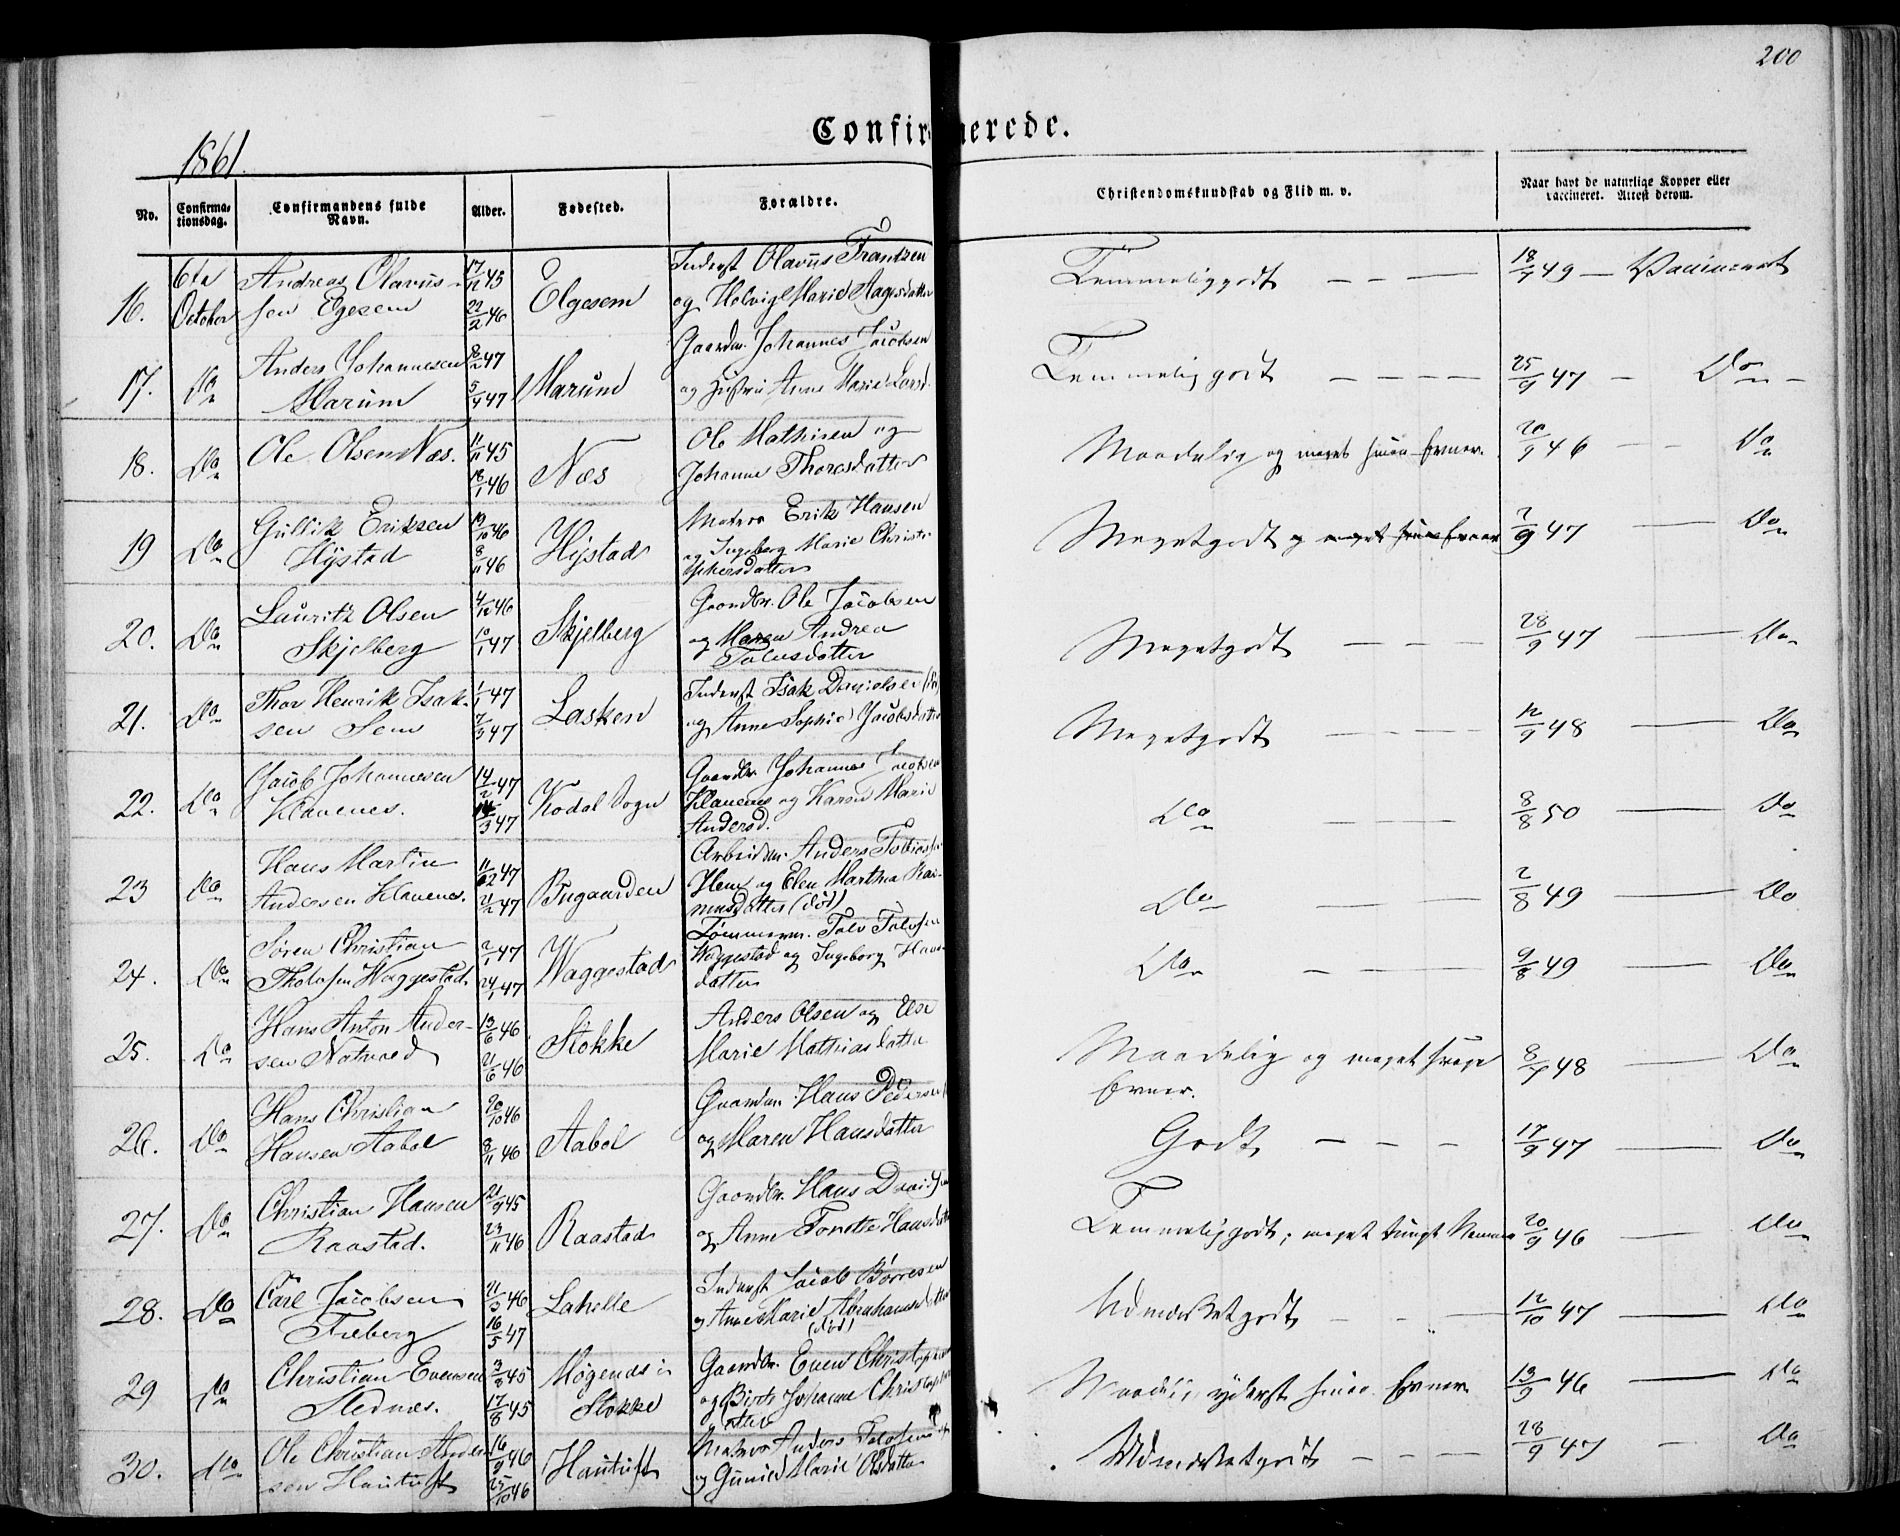 200
Confirmerede.
1861.
No.
Confirma-
tionsdag.
Confirmandens fulde
Navn.
Alder.
Fødested.
Forældre.
Christendomskundskab og Flid m. v.
Naar havt de naturlige Kopper eller
vaccineret. Attest derom.
16. 6te October Andreas Olavus- 17/12 45 Elgesem Inderst Olavus Frantzen Temmelig godt — — — 18/7 49 — Vaccineret
sen Egesem 22/2 46 og Helvig Marie Aagesdatter
17. Do Anders Johannesen 8/2 47 Marum Gaardbr. Johannes Jacobsen Temmelig godt — — — 25/9 47 — Do
Marum 5/4 47 og Hustru Anne Marie Larsd.
18. Do Ole Olsen Næs. 11/11 45 Næs Ole Mathisen og Maadelig og meget smaa Evner. 20/9 46 — Do
18/1 46 Johanne Thoresdatter
19 Do Gullik Eriksen 19/10 46 Hystad Matros Erik Hansen Meget godt og meget smaa Evner 7/9 47 — Do
Hystad 8/11 46 og Ingeborg Marie Christo-
phersdatter
20. Do Lauritz Olsen 4/12 46 Skjelberg Gaardbr. Ole Jacobsen Meget godt — — 28/9 47 — Do
Skjelberg 10/1 47 og Maren Andrea
Talusdatter
21. Do Thor Henrik Isak- 1/1 47 Lasken Inderst Isak Danielsen (død) Meget godt — — — 12/9 48 — Do
sen Sem 7/3 47 og Anne Sophie Jacobsdatter
22. Do Jacob Johannesen 14/2 47 Kodal Sogn Gaardbr. Johannes Jacobsen Do — — — 8/8 50 — Do
Klavenes. 14/3 47 Klavenes og Karen Marie
Andersd.
23 Do Hans Martin 11/2 47 Bugaarden Arbeidsm. Anders Tobiassen Do — — — 2/8 49 — Do
Andersen Klavenes. 21/2 47 Hem og Elen Martha Ras-
musdatter (død)
24. Do Søren Christian 2/1 47 Waggestad Tømmerm. Talv Talvsen Do — — — 9/8 49 — Do
Tholvsen Waggestad. 24/1 47 Waggestad og Ingeborg Hans-
datter
25. Do Hans Anton Ander- 13/6 46 Stokke Anders Olsen og Else Maadelig og meget svage 8/7 48 — Do
sen Natvaed 21/6 46 Marie Mathiasdatter Evner.
26. Do Hans Christian 20/10 46 Aabol Gaardm. Hans Pedersen Godt — — — 17/9 47 — Do
Hansen Aabol 8/11 46 og Maren Hansdatter
27. Do Christian Hansen 21/9 45 Raastad Gaardbr. Hans Davidsen Temmelig godt; meget tungt Nemme 20/9 46 — Do
Raastad. 23/11 46 og Anne Tonette Hansdatter
28. Do Carl Jacobsen 21/3 46 Lahelle Inderst Jacob Børresen Udmærket godt — — — 12/10 47 — Do
Freberg 16/5 47 og Anne Marie Abrahamsdatter
(død)
29 Do Christian Evensen 3/8 45 Møgends i Gaardbr. Even Christopher Maadelig, yderst smaa Evner 13/9 46 — Do
Stednæs. 17/8 45 Stokke og Birte Johanne Christopher
datter
30. Do Ole Christian Ander- 16/9 46 Hautuft Matros Anders Talofsen Udmærket godt — — — 28/9 47 — Do
sen Hautuft 25/10 46 og Gunild Marie Olsdatter